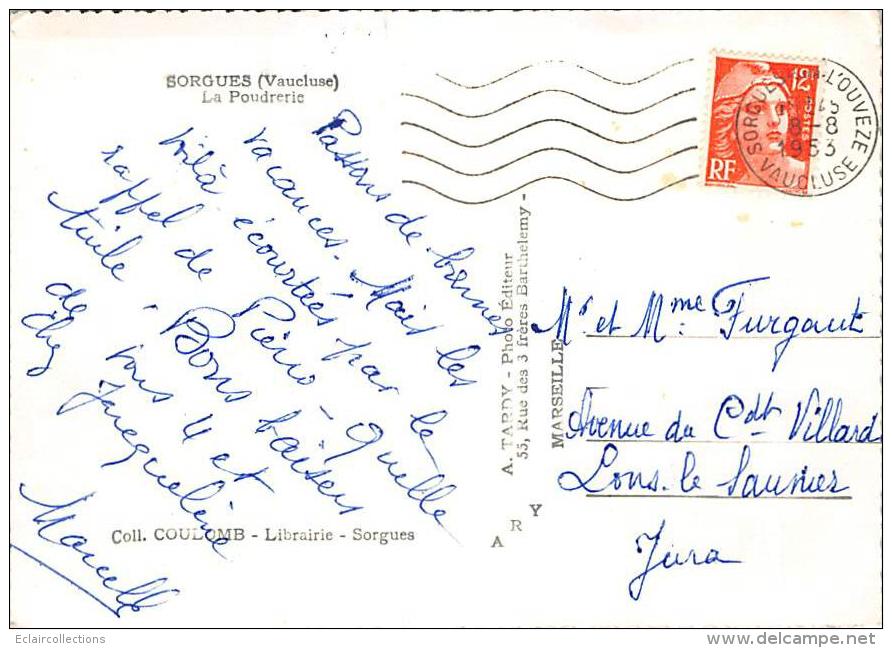 SORGUES (Vaucluse)
La Poudrerie
Passons de bonnes
vacances. Mais les
voilà écourtées par le
rappel de Pierro - Quelle
tuile! Bons baisers
de tous 4 et
chez Jacqueline
Marcelle
Coll. COULOMB - Librairie - Sorgues
A. TARDY - Photo Éditeur
55, Rue des 3 frères Barthelemy -
MARSEILLE
ARY
12F
POSTES
RF
L'OUVEZE
8-8
1953
VAUCLUSE
Mr et Mme Furgaut
Avenue du Cdt Villard
Lons-le Saunier
Jura
Eclaircollections
www.delcampe.net